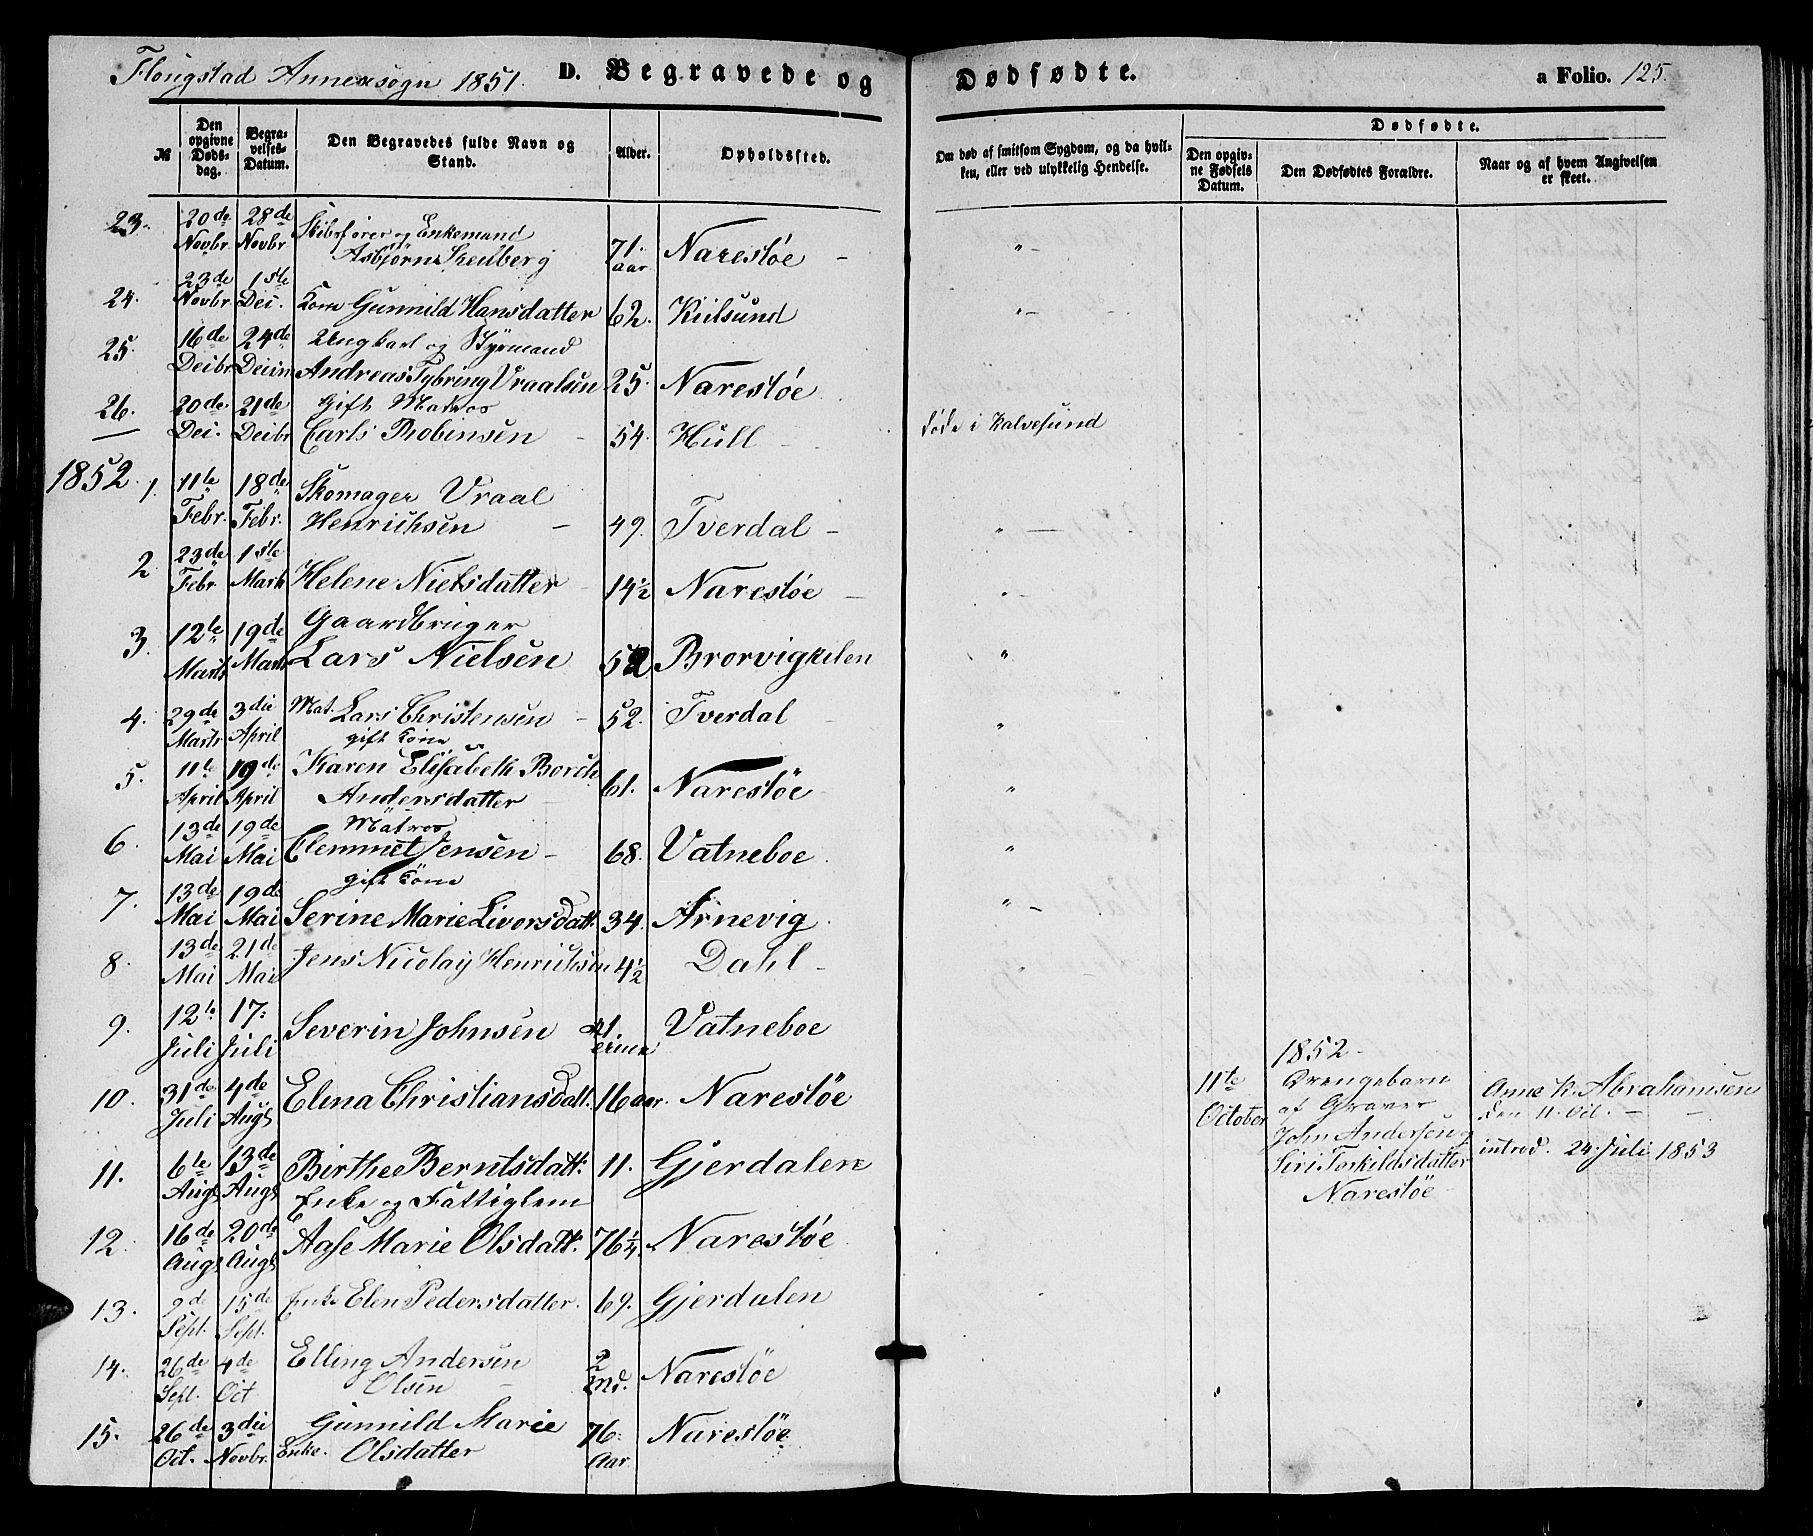 Flougstad Annexsogn 1851. D. Begravede og Dødfødte. a Folio. 125.
№ Den opgivne Døds-dag. Begra-velses-Datum. Den Begravedes fulde Navn og Stand. Alder. Opholdssted. Om død af smitsom Sygdom, og da hvil-ken, eller ved ulykkelig Hendelse. Dødfødte.
Den opgiv-ne Fødsels Datum. Den Dødfødtes Forældre. Naar og af hvem Angivelsen er skeet.
23. 20de Novbr. 28de Novbr Skibsfører og Enkemand
Asbjørn 71. aar Narestøe - " -
24. 23de Novbr 1ste Dec. Kone Gunnild Hansdatter 62. Kiilsund " -
25. 16de Decbr 24de Ungkarl og Styrmand
Andreas Tybring Vraalsen 25. Narestøe
26. 20de Dec. 21de Decbr Gift Matros
Carls Robinsen - 54. Hull - døde i Kalvesund
1852. 1. 11te Febr. 18de Febr. Skomager Vraal
Henrichsen - 49. Tverdal - " -
2 23de Febr 1ste Marts Helene Nielsdatter - 14½ Narestøe - " -
3. 12te Marts 19de Marts Gaardbruger
Lars Nielsen 52 Brorvigkilen "
4. 29de Marts 3die April Mat. Lars Christensen - 52. Tverdal - "
gift Kone
5. 11te April 19de April Karen Elisabeth Borch
Andersdatter - 61. Narestøe - "
Matros
6. 13de Mai 19de Mai Clemmet Jensen - 68. Vatneboe. "
gift Kone
7. 13de Mai 19de Mai Serine Marie Livorsdatt. 34. Arnevig. " -
8. 13de Mai 21de Mai Jens Nicolay Henrichsen 4½ Dahl - "
9. 12te Juli 17. Juli Severin Johnsen Vatneboe
10. 31de Juli 4de Augs Elena Christiansdatt. 16 aar. Narestøe
11. 6te Augs 13de Augs Birthe Berntsdatt: 11. Gjerdalen
Enke og Fattiglem
12. 16de Augs 20de Augs Aase Marie Olsdatt: 76¼. Narestøe
13. 9de Sept. 15de Sept. Enke Elen Pedersdatter. 69. Gjerdalen
14. 26de Sept. 4de Oct Elling Andersen
Olsen - 2 Md. Narestøe
15. 26de Oct. 3die Novbr. Gunnild Marie
Enke. Olsdatter 76. Aar Narestøe
1852 -
11te October Drengebarn
af Graver
John Andersen og
Siri Torkildsdatter
Narestøe -
Anne K. Abrahamsen
den 11. Oct. - -
introd. 24. Juli 1853